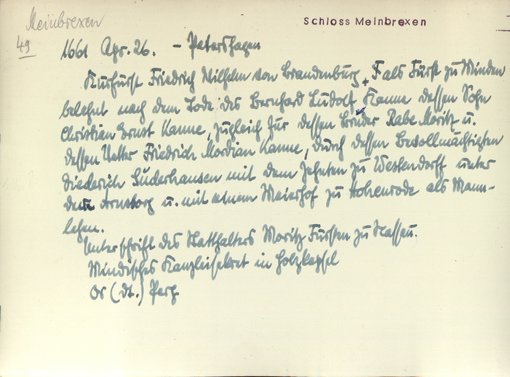 Meinbrexen
49
Schloss Meinbrexen
1661 Apr. 26. - Petershagen
Kurfürst Friedrich Wilhelm von Brandenburg, als Fürst zu Minden
belehnt nach dem Tode des Bernhard Ludolf Kanne dessen Sohn
Christian Ernst Kanne, zugleich für dessen Brüder Rabe Moritz u.
dessen Vetter Friedrich Mordian Kanne, durch dessen Bevollmächtigten
Diederich Süderhausen mit dem Zehnten zu Westendorff unter
dem Arnsberg u. mit einem Meierhof zu Hohenrode als Mann-
lehen.
Unterschrift des Statthalters Moritz Fürsten zu Nassau.
Mindisches Kanzleisekret in Holzkapsel
Or (dt.) Perg.